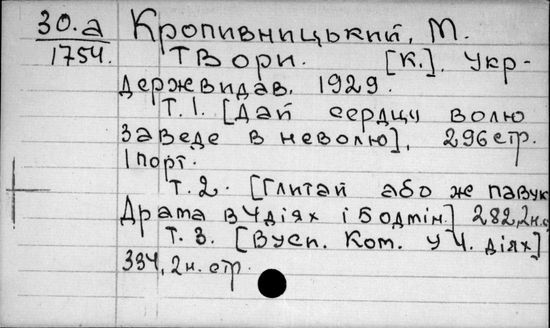 30.а Кропивницький, М.
1754. Твори. [К.]. Укр-
держвидав. 1929.
Т. 1. [Дай сердцу волю
заведе в неволю], 296 стр.
1 порт.
Т. 2. [Глитай або ж павук
Драма в 4 діях і 5 одмін.] 282, 2 н.с
Т. 3. [Вусп. Ком. у 4. діях]
334, 2 н. стр.